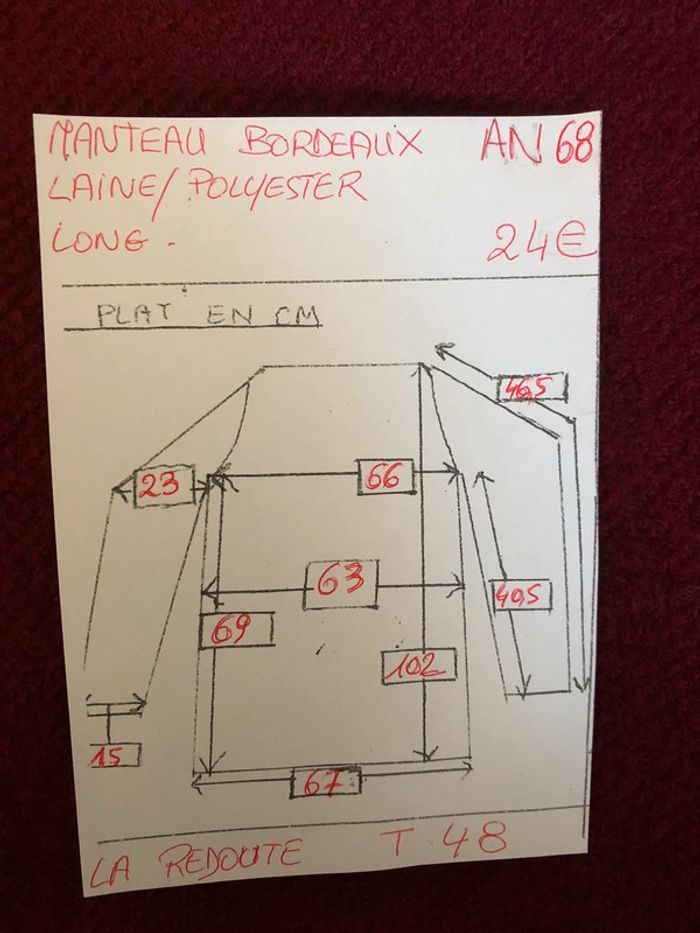 MANTEAU BORDEAUX AN 68
LAINE/POLYESTER
LONG - 24€
PLAT EN CM
46,5
23 66
63 40,5
69
102
15
67
LA REDOUTE T 48